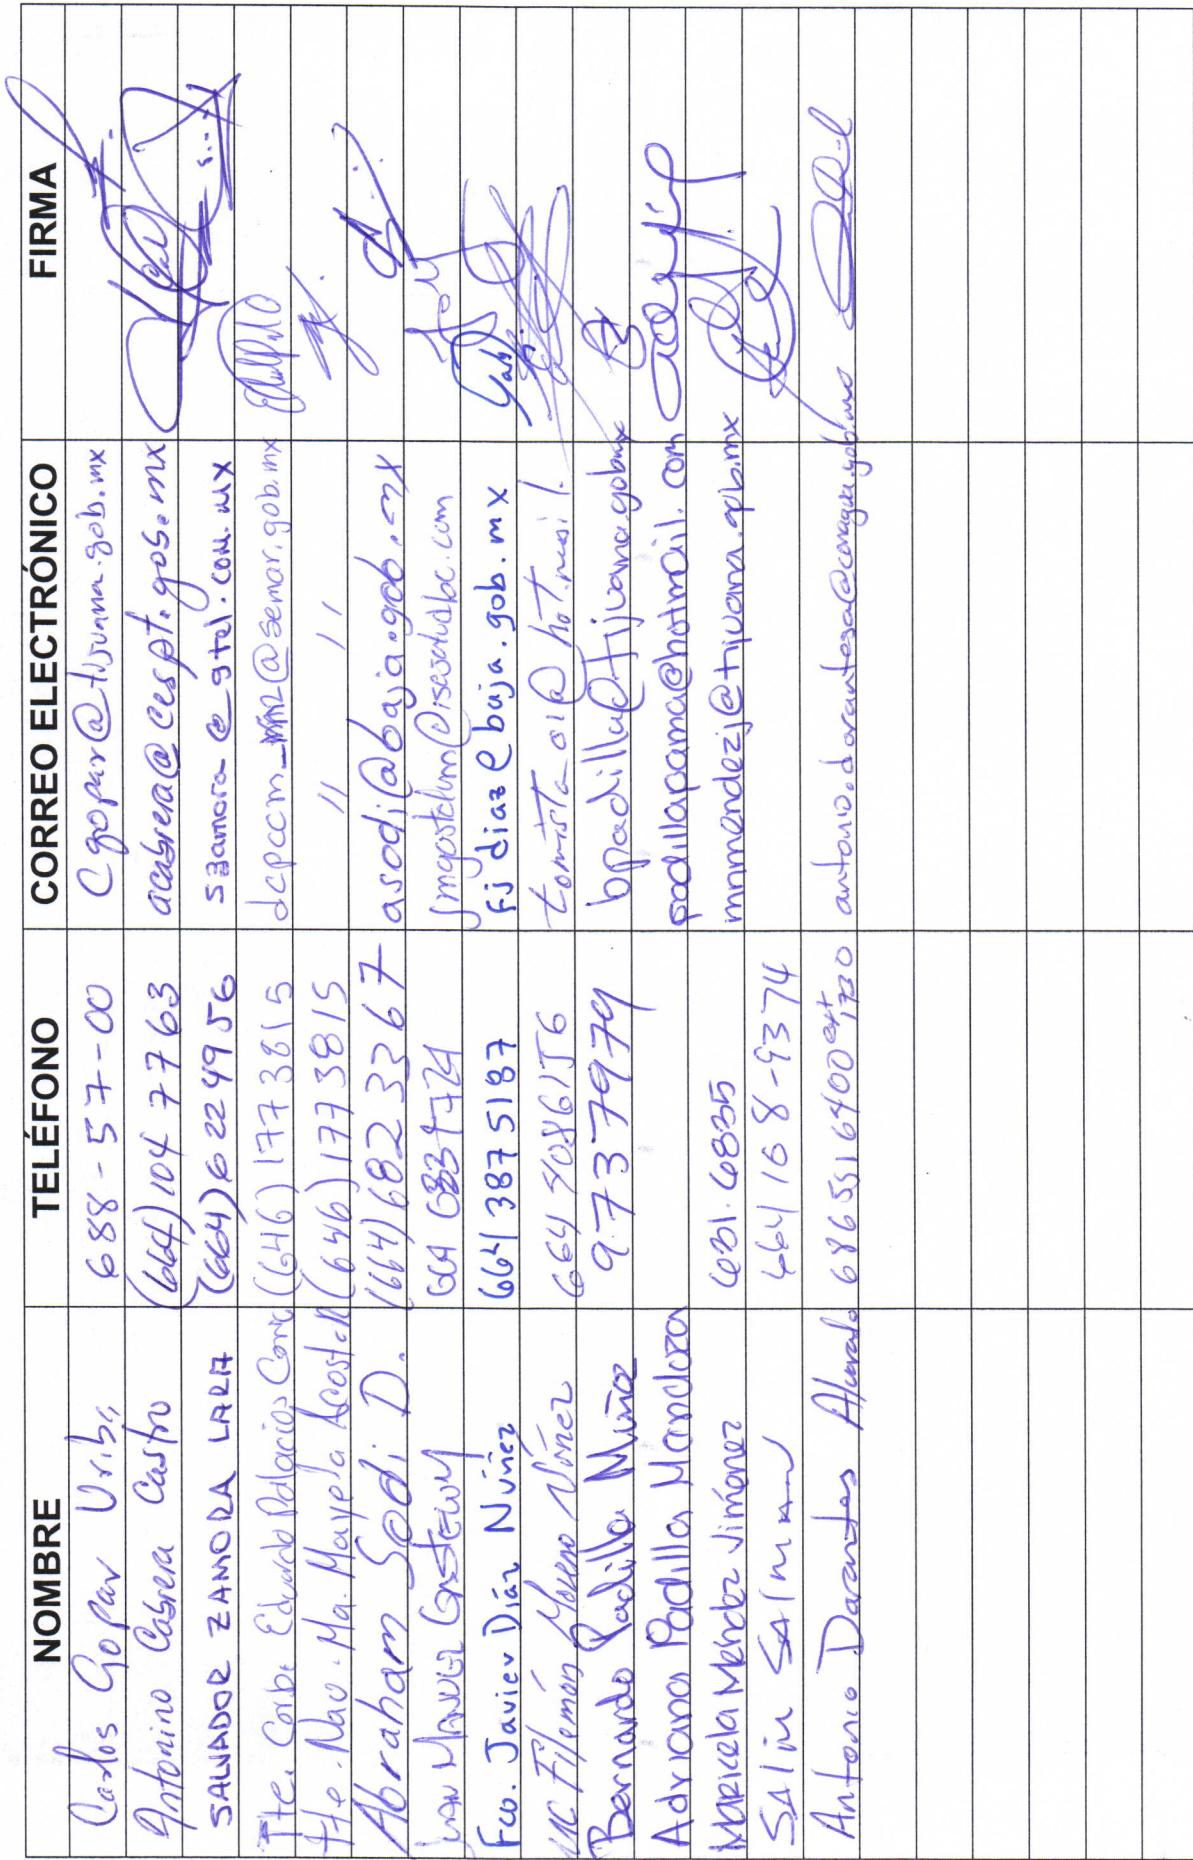 NOMBRE TELÉFONO CORREO ELECTRÓNICO FIRMA
Carlos Gopar Uribe 688-57-00 Cgopar@tijuana.gob.mx
Antonino Cabrera Castro (664) 104 7763 acabrera@cespt.gob.mx
SALVADOR ZAMORA LARA (664) 622 49 56 szamora@gtel.com.mx
Tte. Corb. Eduardo Palacios (646) 177 3815
Tte. Nav. Ma. Mayela Acosta (646) 177 3815 " " "
Abraham Sodi D. (664) 682 33 67 asodi@baja.gob.mx
JUAN MANUEL 664
Fco. Javier Díaz Núñez 664 387 5187 fjdiaz@baja.gob.mx
MC Filemón Moreno Núñez 664 4086156
Bernardo Padilla Muñoz 9737979 bpadilla@tijuana.gob.mx
Adriana Padilla Mendoza padillapama@hotmail.com
Maricela Méndez Jiménez 631.6835 mnmendezj@tijuana.gob.mx
SAlím SAlmán 664 168-9374
Antonio Dorantes Alvarado 686 551 6400 ext 1730 antonio.dorantesa@conagua.gob.mx